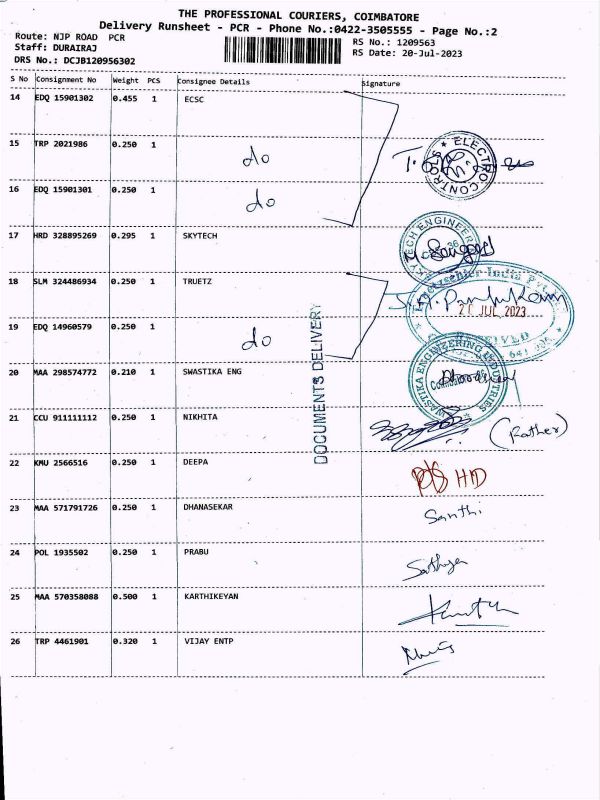 THE PROFESSIONAL COURIERS, COIMBATORE
Delivery Runsheet - PCR - Phone No.:0422-3505555 - Page No.:2
Route: NJP ROAD PCR
RS No.: 1209563
Staff: DURAIRAJ
RS Date: 20-Jul-2023
DRS No.: DCJB120956302
S No Consignment No Weight PCS Consignee Details Signature
14 EDQ 15901302 0.455 1 ECSC
15 TRP 2021986 0.250 1 do
ELECTRO CONTROLS
16 EDQ 15901301 0.250 1 do
17 HRD 328895269 0.295 1 SKYTECH
SKYTECH ENGINEER
18 SLM 324486934 0.250 1 TRUETZ
India Pvt
JUL 2023
19 EDQ 14960579 0.250 1 do
RECEIVED
DOCUMENTS DELIVERY
20 MAA 298574772 0.210 1 SWASTIKA ENG
SWASTIKA ENGINEERING INDUSTRIES
21 CCU 911111112 0.250 1 NIKHITA (Father)
22 KMU 2566516 0.250 1 DEEPA
23 MAA 571791726 0.250 1 DHANASEKAR Santhi
24 POL 1935502 0.250 1 PRABU Sathya
25 MAA 570358088 0.500 1 KARTHIKEYAN
26 TRP 4461901 0.320 1 VIJAY ENTP